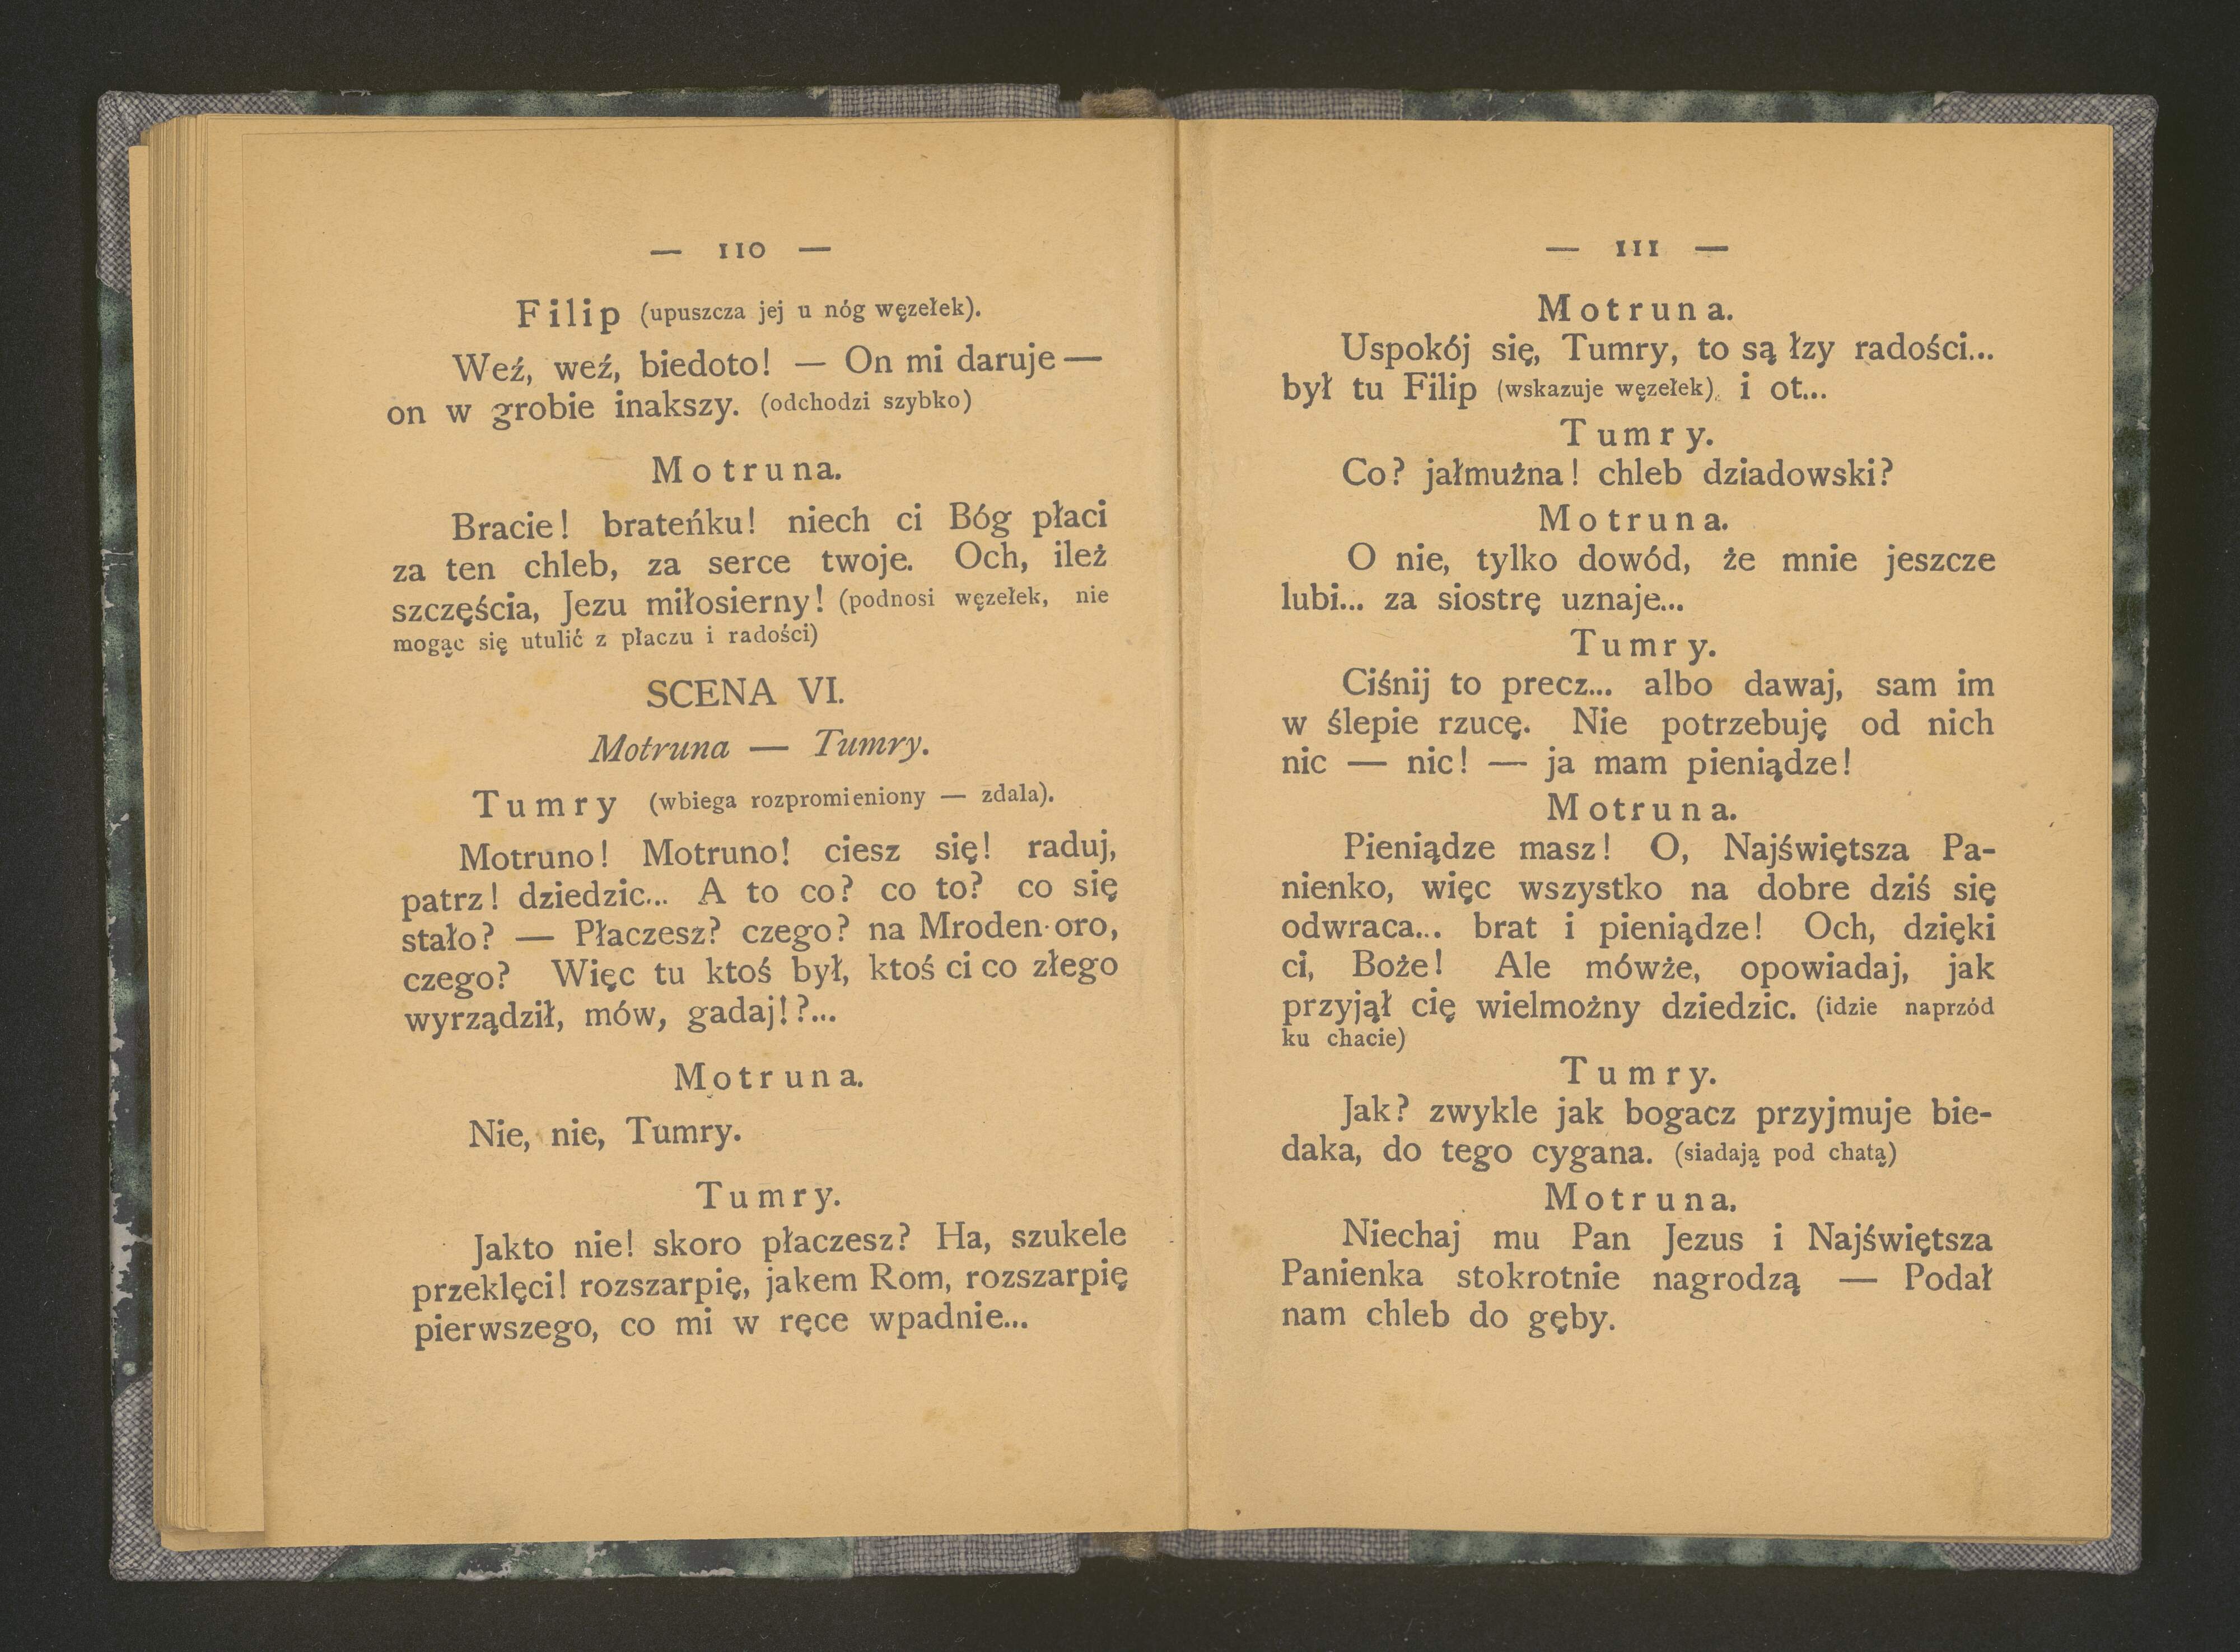 — 110 —
Filip (upuszcza jej u nóg węzełek).
Weź, weź, biedoto! — On mi daruje —
on w grobie inakszy. (odchodzi szybko)
Motruna.
Bracie! brateńku! niech ci Bóg płaci
za ten chleb, za serce twoje. Och, ileż
szczęścia, Jezu miłosierny! (podnosi węzełek, nie
mogąc się utulić z płaczu i radości)
SCENA VI.
Motruna — Tumry.
Tumry (wbiega rozpromieniony — zdala).
Motruno! Motruno! ciesz się! raduj,
patrz! dziedzic... A to co? co to? co się
stało? — Płaczesz? czego? na Mroden-oro,
czego? Więc tu ktoś był, ktoś ci co złego
wyrządził, mów, gadaj!?...
Motruna.
Nie, nie, Tumry.
Tumry.
Jakto nie! skoro płaczesz? Ha, szukele
przeklęci! rozszarpię, jakem Rom, rozszarpię
pierwszego, co mi w ręce wpadnie...
— 111 —
Motruna.
Uspokój się, Tumry, to są łzy radości...
był tu Filip (wskazuje węzełek) i ot...
Tumry.
Co? jałmużna! chleb dziadowski?
Motruna.
O nie, tylko dowód, że mnie jeszcze
lubi... za siostrę uznaje...
Tumry.
Ciśnij to precz... albo dawaj, sam im
w ślepie rzucę. Nie potrzebuję od nich
nic — nic! — ja mam pieniądze!
Motruna.
Pieniądze masz! O, Najświętsza Pa-
nienko, więc wszystko na dobre dziś się
odwraca... brat i pieniądze! Och, dzięki
ci, Boże! Ale mówże, opowiadaj, jak
przyjął cię wielmożny dziedzic. (idzie naprzód
ku chacie)
Tumry.
Jak? zwykle jak bogacz przyjmuje bie-
daka, do tego cygana. (siadają pod chatą)
Motruna.
Niechaj mu Pan Jezus i Najświętsza
Panienka stokrotnie nagrodzą — Podał
nam chleb do gęby.